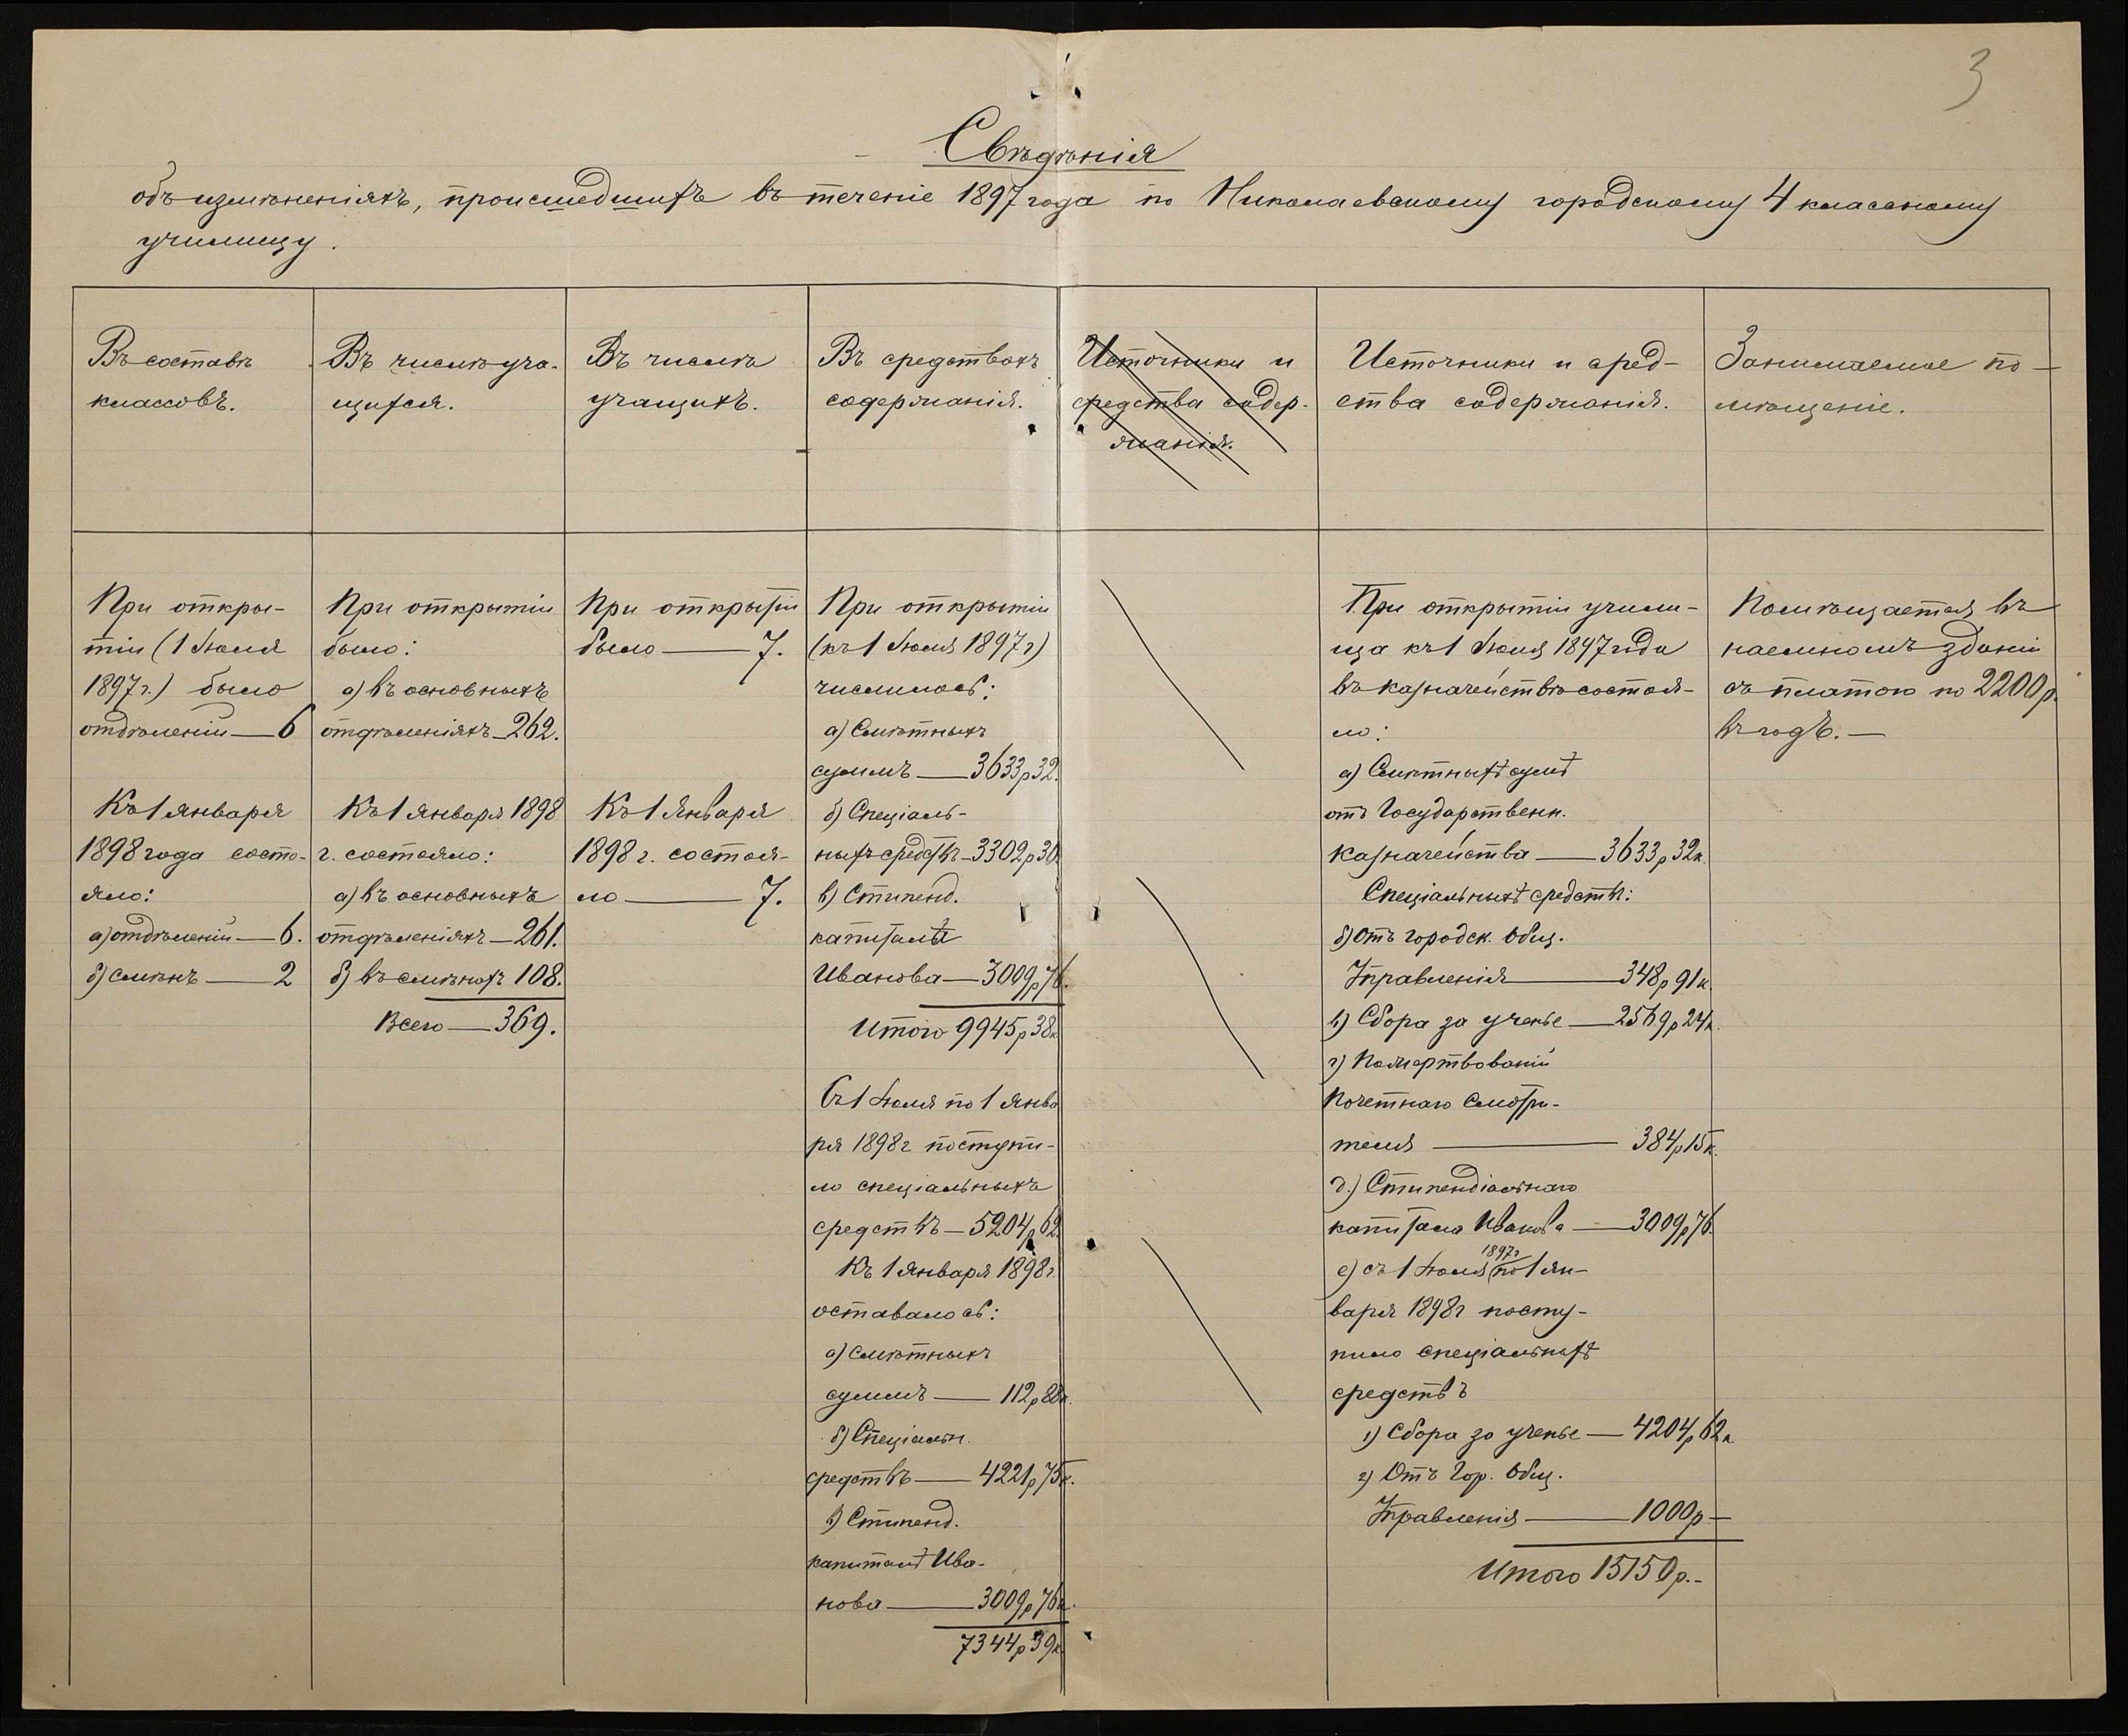 3
Свѣдѣнія
объ измѣненіяхъ, происшедшихъ въ теченіе 1897 года по Николаевскому городскому 4 классному
училищу.
Въ составѣ
классовъ.
Въ числѣ уча-
щихся.
Въ числѣ
учащихъ.
Въ средствахъ
содержанія.
Источники и
средства содер-
жанія.
Источники и сред-
ства содержанія.
Занимаемое по-
мѣщеніе.
При откры-
тіи (1 Іюля
1897 г.) было
отдѣленій — 6
Къ 1 января
1898 года состо-
яло:
а) отдѣленій — 6.
б) смѣнъ — 2
При открытіи
было:
а) въ основныхъ
отдѣленіяхъ — 262.
Къ 1 Января 1898
г. состояло:
а) въ основныхъ
отдѣленіяхъ — 261.
б) въ смѣнахъ 108.
Всего — 369.
При открытіи
было — 7.
Къ 1 Января
1898 г. состоя-
ло — 7.
При открытіи
(къ 1 Іюля 1897 г)
числилось:
а) Смѣтныхъ
суммъ — 3633 р 32.
б) Спеціаль-
ныхъ средствъ — 3302 р 30
в) Стипенд.
капитала
Иванова — 3009 р 76.
Итого 9945 р 38 к
Съ 1 Іюля по 1 Янва
ря 1898 г поступи-
ло спеціальныхъ
средствъ — 5204 р 62.
Къ 1 Января 1898 г.
оставалось:
а) смѣтныхъ
суммъ — 112 р 88 к.
б) Спеціальн.
средствъ — 4221 р 75 к.
в) Стипенд.
капитал Ива-
нова — 3009 р 76 к.
7344 р 39 к
При открытіи учили-
ща къ 1 Іюля 1897 года
въ казначействѣ состоя-
ло:
а) Смѣтныхъ сумъ
отъ Государственн.
казначейства — 3633 р 32 к.
Спеціальныхъ средств:
б) отъ городск. Общ.
Управленія — 348 р 91 к.
в) Сбора за ученье — 2569 р 24 к.
г) Пожертвованій
Почетнаго Смотри-
теля — 384 р 15 к.
д.) Стипендіальнаго
капитала Иванова — 3009 р 76.
1897 г
е) съ 1 Іюля по 1 ян-
варя 1898 г посту-
пило спеціальныхъ
средствъ
1) Сбора за ученье — 4204 р 62 к.
2) Отъ Гор. Общ.
Управленія — 1000 р —
Итого 15150 р. -
Помѣщается въ
наемномъ зданіи
съ платою по 2200 р.
въ годъ. —